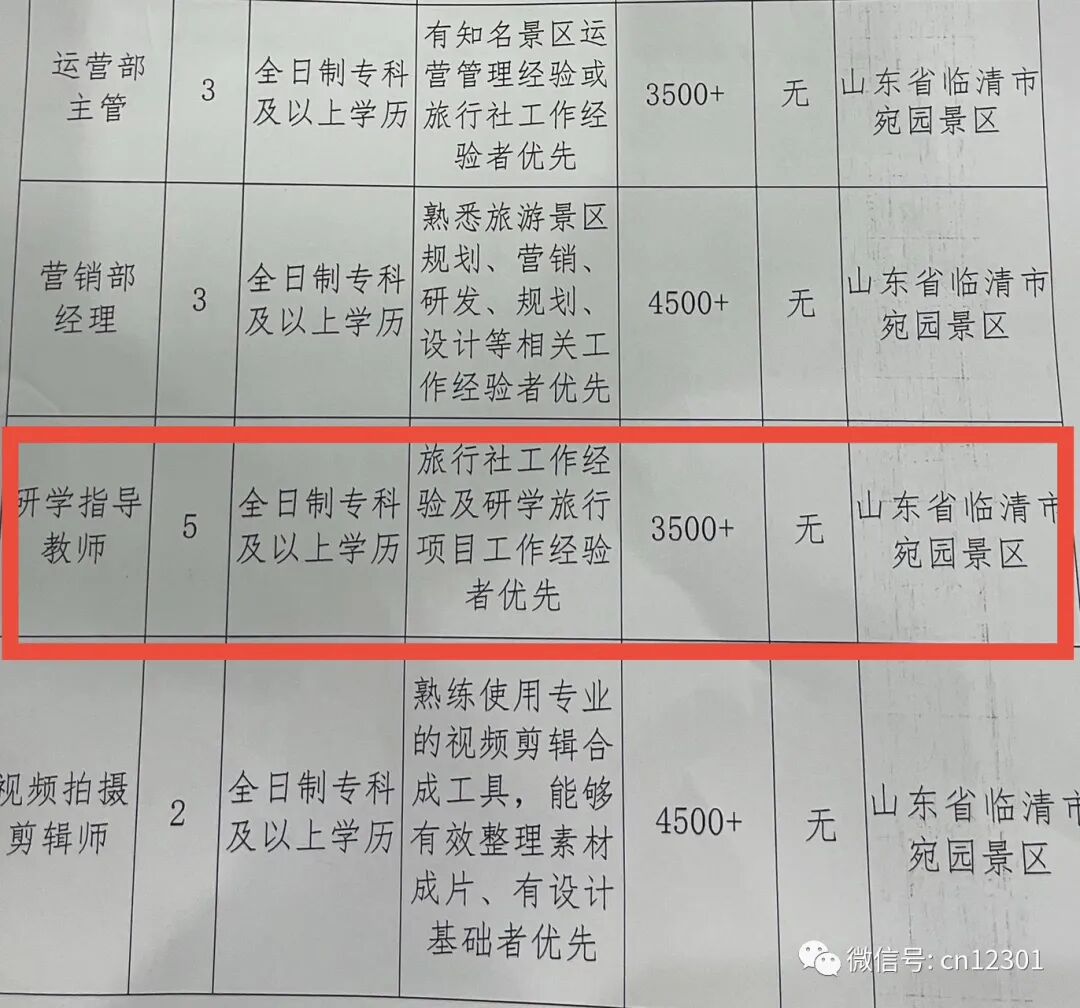 运营部
主管
3
全日制专科
及以上学历
有知名景区运
营管理经验或
旅行社工作经
验者优先
3500+
无
山东省临清市
宛园景区
营销部
经理
3
全日制专科
及以上学历
熟悉旅游景区
规划、营销、
研发、规划、
设计等相关工
作经验者优先
4500+
无
山东省临清市
宛园景区
研学指导
教师
5
全日制专科
及以上学历
旅行社工作经
验及研学旅行
项目工作经验
者优先
3500+
无
山东省临清市
宛园景区
视频拍摄
剪辑师
2
全日制专科
及以上学历
熟练使用专业
的视频剪辑合
成工具，能够
有效整理素材
成片、有设计
基础者优先
4500+
无
山东省临清市
宛园景区
微信号: cn12301